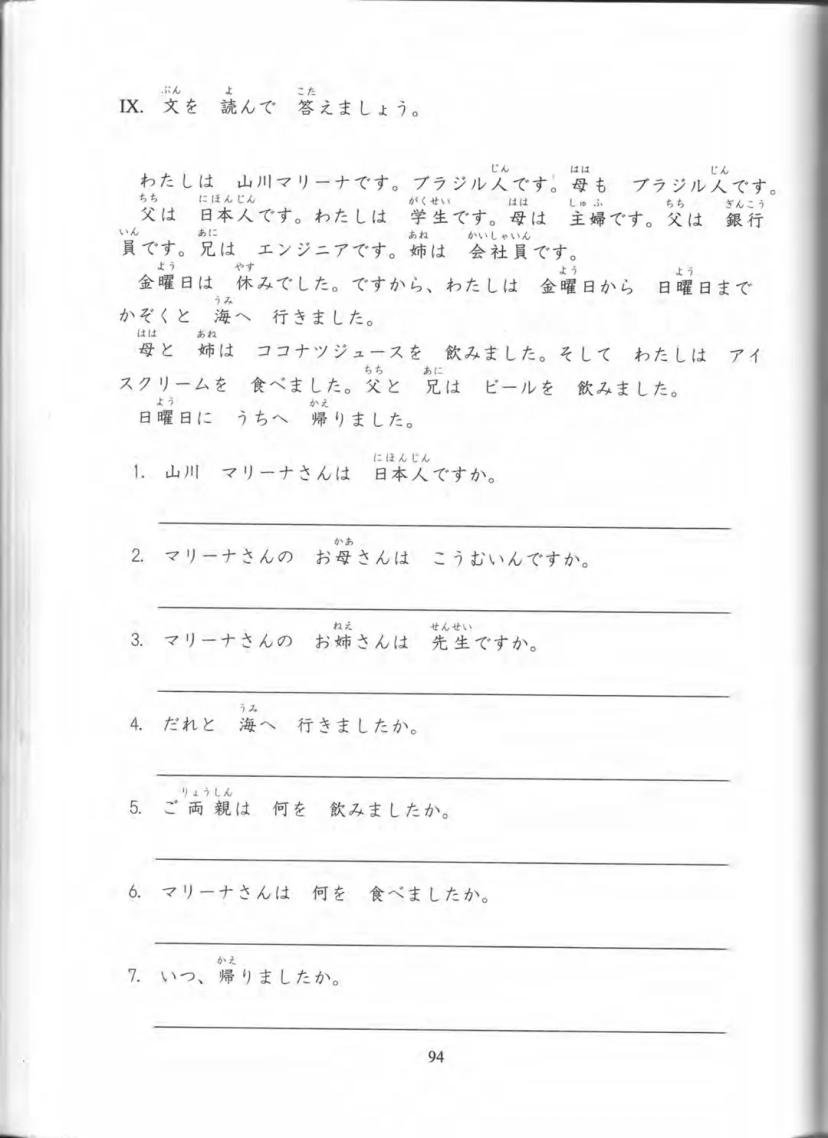 IX. 文を 読んで 答えましょう。
わたしは 山川マリーナです。ブラジル人です。母も ブラジル人です。
父は 日本人です。わたしは 学生です。母は 主婦です。父は 銀行
員です。兄は エンジニアです。姉は 会社員です。
金曜日は 休みでした。ですから、わたしは 金曜日から 日曜日まで
かぞくと 海へ 行きました。
母と 姉は ココナツジュースを 飲みました。そして わたしは アイ
スクリームを 食べました。父と 兄は ビールを 飲みました。
日曜日に うちへ 帰りました。
1. 山川 マリーナさんは 日本人ですか。
2. マリーナさんの お母さんは こうむいんですか。
3. マリーナさんの お姉さんは 先生ですか。
4. だれと 海へ 行きましたか。
5. ご両親は 何を 飲みましたか。
6. マリーナさんは 何を 食べましたか。
7. いつ、帰りましたか。
94